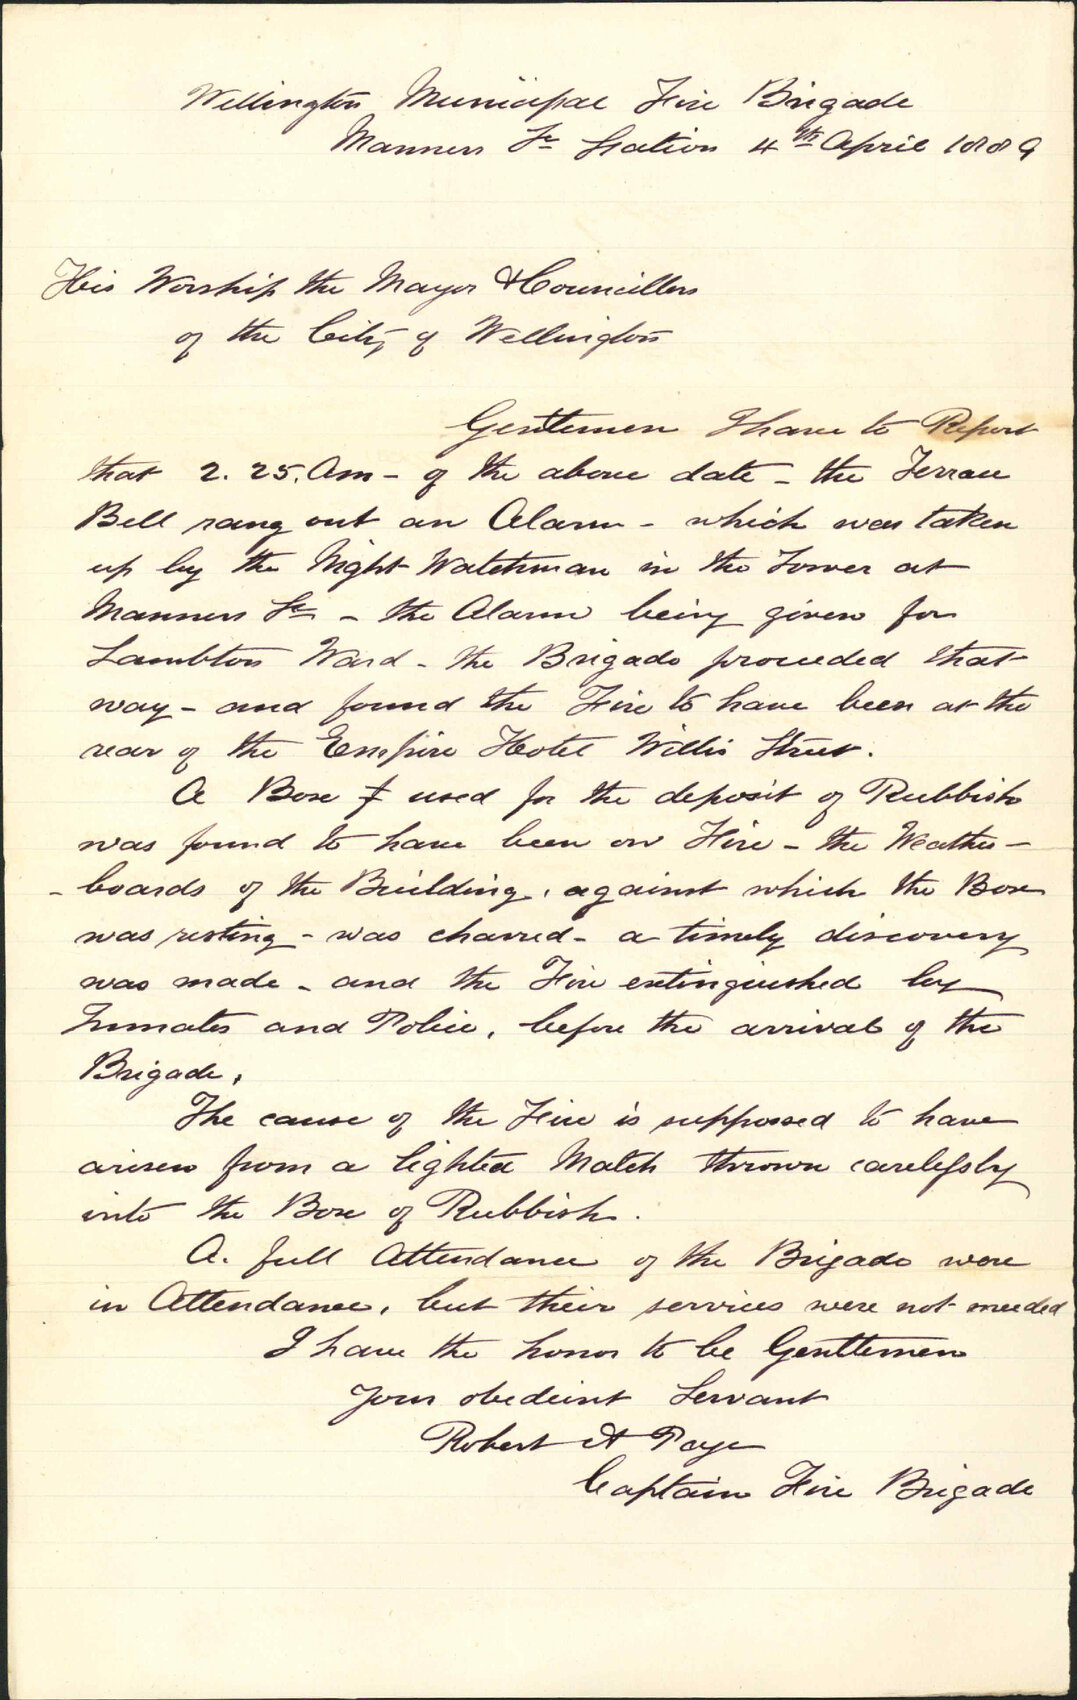 Wellington Municipal Fire Brigade
Manners St Station 4th April 1889
His Worship the Mayor & Councillors
of the City of Wellington
Gentlemen I have to Report
that 2.25. Am - of the above date - the Terrace
Bell rang out an Alarm - which was taken
up by the Night Watchman in the Tower at
Manners St - the Alarm being given for
Lambton Ward - the Brigade proceeded that
way - and found the Fire to have been at the
rear of the Empire Hotel Willis Street.
A Box used for the deposit of Rubbish
was found to have been on Fire - the Weather -
- boards of the Building, against which the Box
was resting - was charred - a timely discovery
was made - and the Fire extinguished by
Inmates and Police, before the arrival of the
Brigade.
The cause of the Fire is supposed to have
arisen from a lighted Match thrown carelessly
into the Box of Rubbish.
A. full Attendance of the Brigade were
in Attendance, but their services were not needed
I have the honor to be Gentlemen
Your obedeint Servant
Robert A Page
Captain Fire Brigade